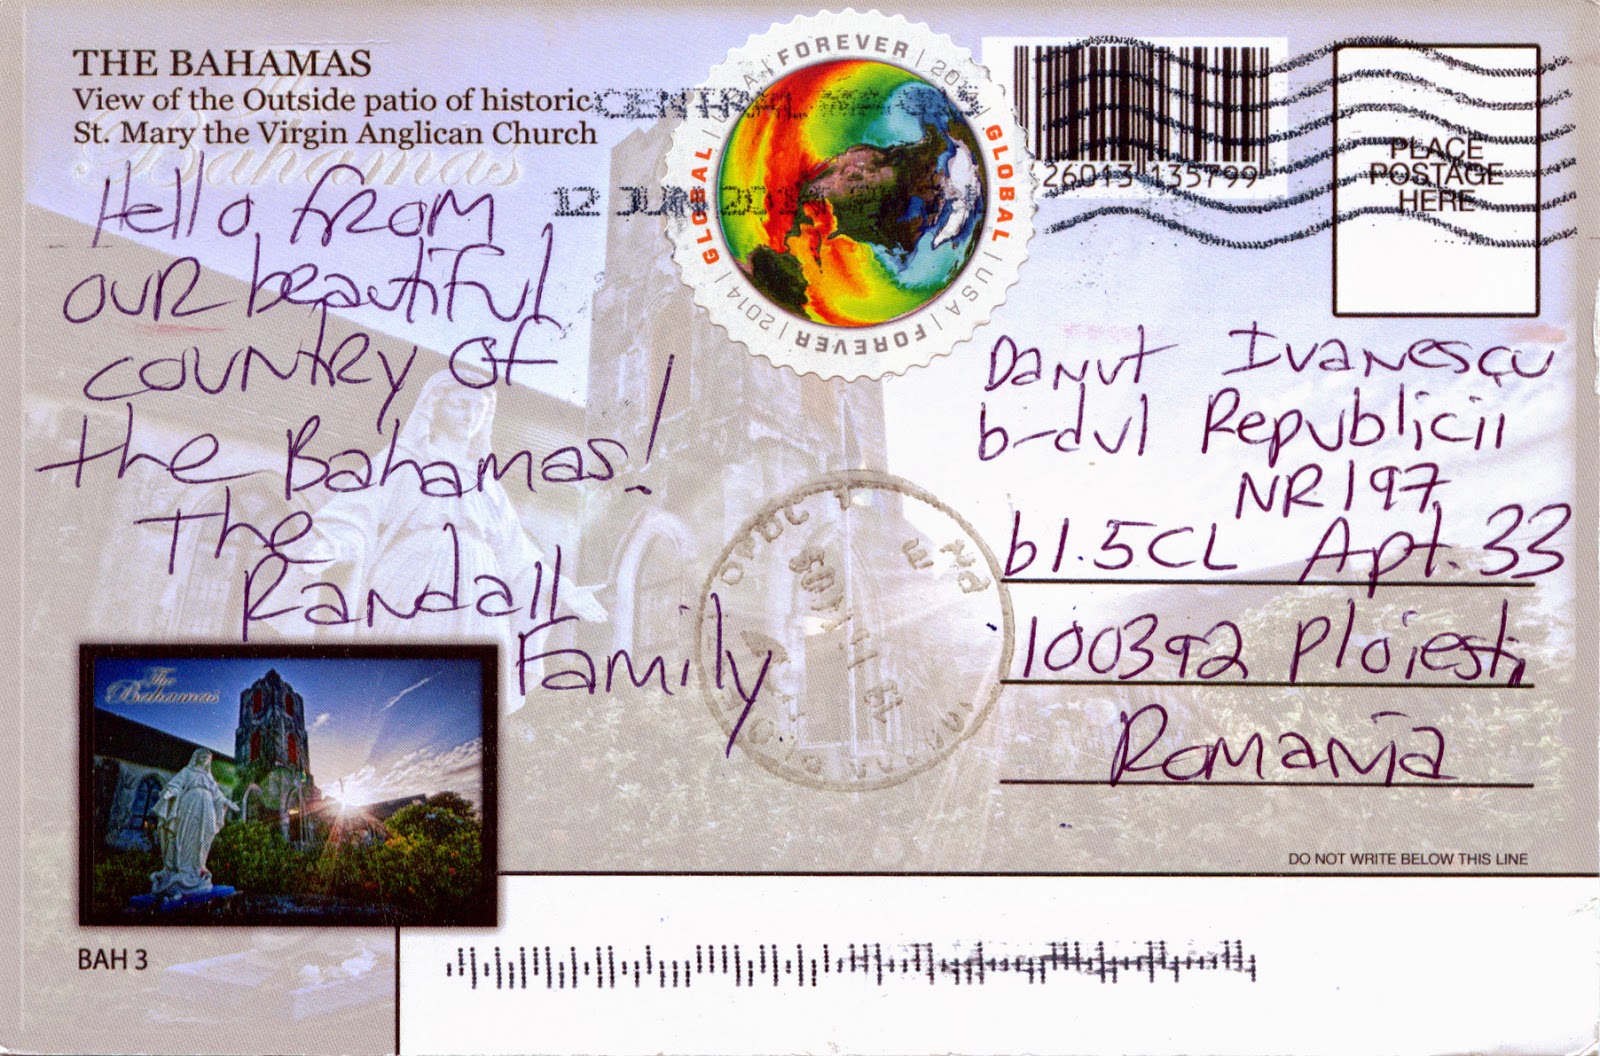 THE BAHAMAS
View of the Outside patio of historic
St. Mary the Virgin Anglican Church
Hello from
our beautiful
country of
the Bahamas!
The
Randall
Family
GLOBAL | USA | FOREVER | 2014 | GLOBAL | USA | FOREVER | 2014
CENTRAL
12 JUN
26013 135799
PLACE
POSTAGE
HERE
Danut Ivanescu
b-dul Republicii
NR.197
bl.5CL Apt.33
100392 Ploiesti
Romania
DO NOT WRITE BELOW THIS LINE
The
Bahamas
BAH 3